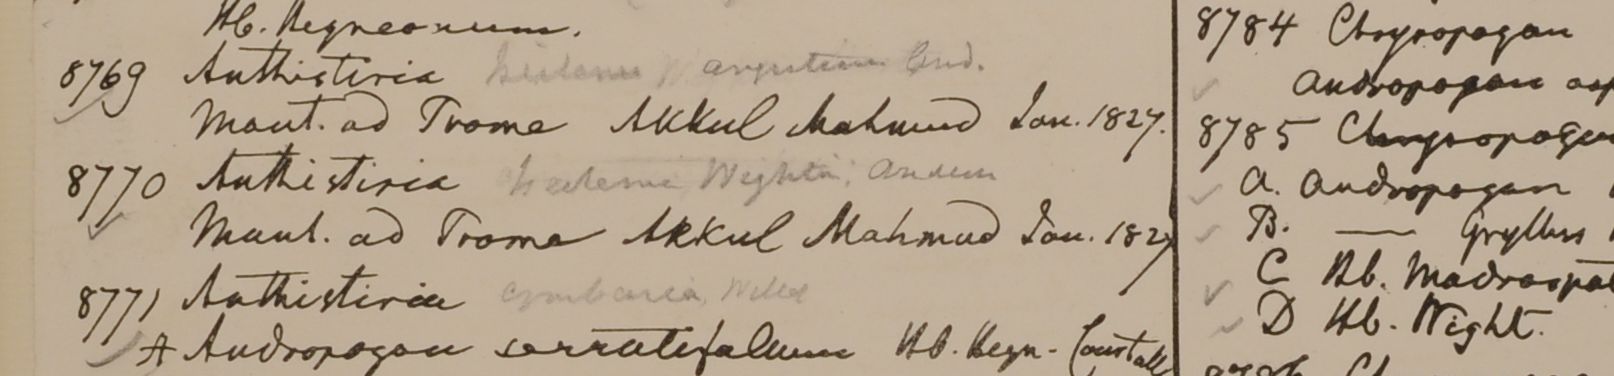 Hb. Heyneanum.
8769 Anthistiria arguens
Mont. ad Trome Akkul Mahmud Jan. 1827.
8770 Anthistiria Wightii, Anders
Mont. ad Trome Akkul Mahmud Jan. 182
8771 Anthistiria cymbaria, Willd
A Andropogon serratifolium Hb. Heyn.
8784 Chrysopogon
Andropogon
8785 Chrysopogon
A. Andropogon
B. —— Gryllus
C Hb. Madraspat
D Hb. Wight.